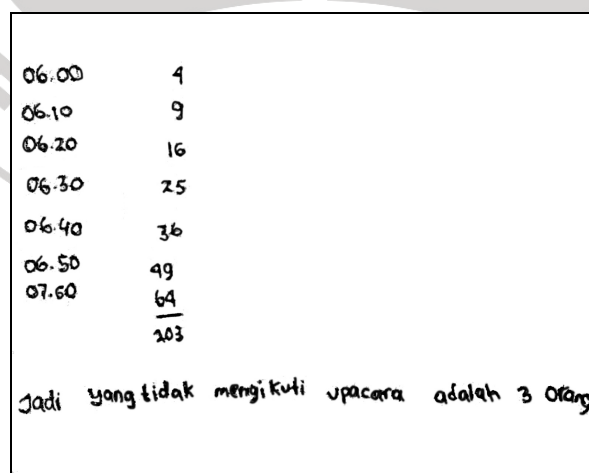 06.00 4
06.10 9
06.20 16
06.30 25
06.40 36
06.50 49
07.60 64
203
Jadi yang tidak mengikuti upacara adalah 3 orang